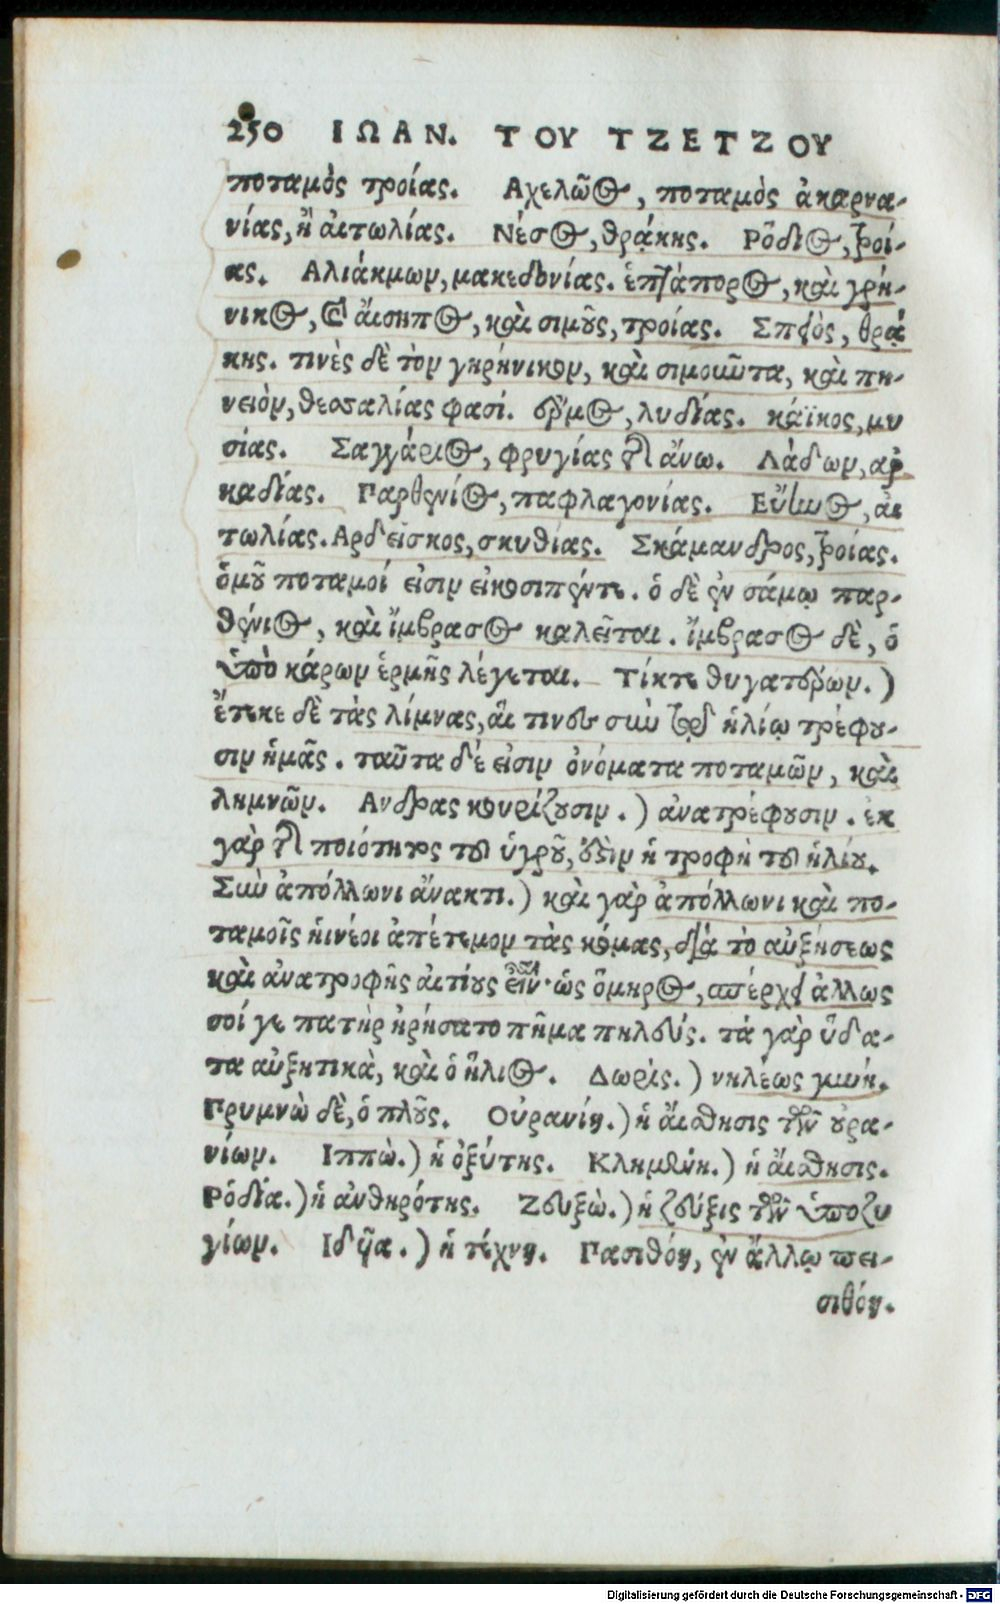 250 ΙΩΑΝ. ΤΟΥ ΤΖΕΤΖΟΥ
ποταμὸς τροίας. Αχελῶος, ποταμὸς ἀκαρνα-
νίας, ἢ αἰτωλίας. Νέσος, θρᾴκης. Ρόδιος, τροί-
ας. Αλιάκμων, μακεδονίας. ἑπτάπορος, καὶ γρή-
νικος, καὶ αἴσηπος, καὶ σιμοῦς, τροίας. θρᾴ
κης. τινὲς δὲ τὸν γρήνικον, καὶ σιμοοῦντα, καὶ πη-
νειὸν, θεσσαλίας φασί. ἕρμος, λυδίας. κάϊκος, μυ
σίας. Σαγγάριος, φρυγίας τῆς ἄνω. Λάδων, αρ
καδίας. Παρθένιος, παφλαγονίας. Εὔηνος, αἰ
τωλίας. Αρδεῖσκος, σκυθίας. Σκάμανδρος, τροίας.
ὁμοῦ ποταμοί εἰσιν εἰκοσιπέντε. ὁ δὲ ἐν σάμῳ παρ-
θένιος, καὶ ἴμβρασος καλεῖται. ἴμβρασος δὲ, ὁ
ὑπὸ κάρων ἑρμῆς λέγεται. Τίκτε θυγατέρων.)
ἔτεκε δὲ τὰς λίμνας, αἵ τινες σὺν τῷ ἡλίῳ τρέφου-
σιν ἡμᾶς. ταῦτα δέ εἰσιν ὀνόματα ποταμῶν, καὶ
λημνῶν. Ανδρας κουρίζουσιν.) ἀνατρέφουσιν. ἐκ
γὰρ τῆς ποιότητος τοῦ ὑγροῦ, ἐστὶν ἡ τροφὴ τοῦ ἡλίου.
Σὺν ἀπόλλωνι ἄνακτι.) καὶ γὰρ ἀπόλλωνι καὶ πο-
ταμοῖς ἡινέοι ἀπέτεμον τὰς κόμας, διὰ τὸ αὐξήσεως
καὶ ἀνατροφῆς αἰτίους εἶναι. ὡς ὅμηρος, σπέρχει ἄλλως
σοί γε πατὴρ ἠρήσατο πῆμα πηλεύς. τά γὰρ ὕδα-
τα αὐξητικὰ, καὶ ὁ ἥλιος. Δωρίς.) νηλέως γυνή.
Πρυμνὼ δὲ, ὁ πλοῦς. Οὐρανίη.) ἡ αἴσθησις τῶν οὐρα-
νίων. Ιππὼ.) ἡ ὀξύτης. Κλημένη.) ἡ αἴσθησις.
Ρόδια.) ἡ ἀνθηρότης. Ζευξὼ.) ἡ ζεύξις τῶν ὑποζυ
γίων. Ιδυῖα.) ἡ τέχνη. Πασιθόη, ἐν ἄλλῳ πει-
σιθόη.
Digitalisierung gefördert durch die Deutsche Forschungsgemeinschaft - DFG